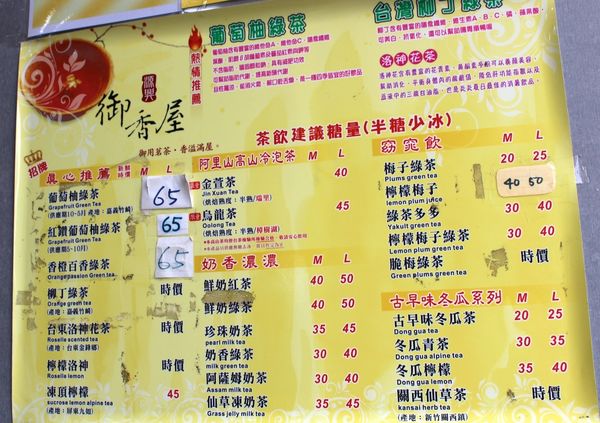 葡萄柚綠茶
熱情推薦
台灣柳丁綠茶
洛神花茶
源興
御香屋
御用茗茶·香溢滿屋。
茶飲建議糖量(半糖少冰)
招牌
真心推薦
新鮮
特價
M L
葡萄柚綠茶 65
Grapefruit Green Tea
(供應期10-5月 產地:嘉義竹崎)
紅鑽葡萄柚綠茶 65
Grapefruit Green Tea
香橙百香綠茶 65
Orange passion Green tea
柳丁綠茶 時價
Orange green tea
(產地:嘉義竹崎)
台東洛神花茶 時價
Roselle scented tea
(產地:台東金鋒鄉)
檸檬洛神 時價
Roselle lemon
凍頂檸檬 45
sucrose lemon alpine tea
(產地:屏東九如)
阿里山高山冷泡茶 M L
金萱茶 40
Jin Xuan Tea
(烘焙熟度:半熟/瑞里)
烏龍茶 45
Oolong Tea
(烘焙熟度:半熟/樟樹湖)
奶香濃濃 M L
鮮奶紅茶 40 50
鮮奶綠茶 40 50
珍珠奶茶 35 45
pearl milk tea
奶香綠茶 30 40
milk green tea
阿薩姆奶茶 30 40
Assam milk tea
仙草凍奶茶 35 45
Grass jelly milk tea
窈窕飲 M L
梅子綠茶 20 25
Plums green tea
檸檬梅子 40 50
lemon plum juice
綠茶多多 30 40
Yakult green tea
檸檬梅子綠茶 30 40
Lemon plum green tea
脆梅綠茶 時價
Green plums green tea
古早味冬瓜系列 M L
古早味冬瓜茶 20 25
Dong gua tea
冬瓜青茶 30 35
Dong gua alpine tea
冬瓜檸檬 35 40
Dong gua lemon
關西仙草茶 時價
kansai herb tea
(產地:新竹關西鎮)